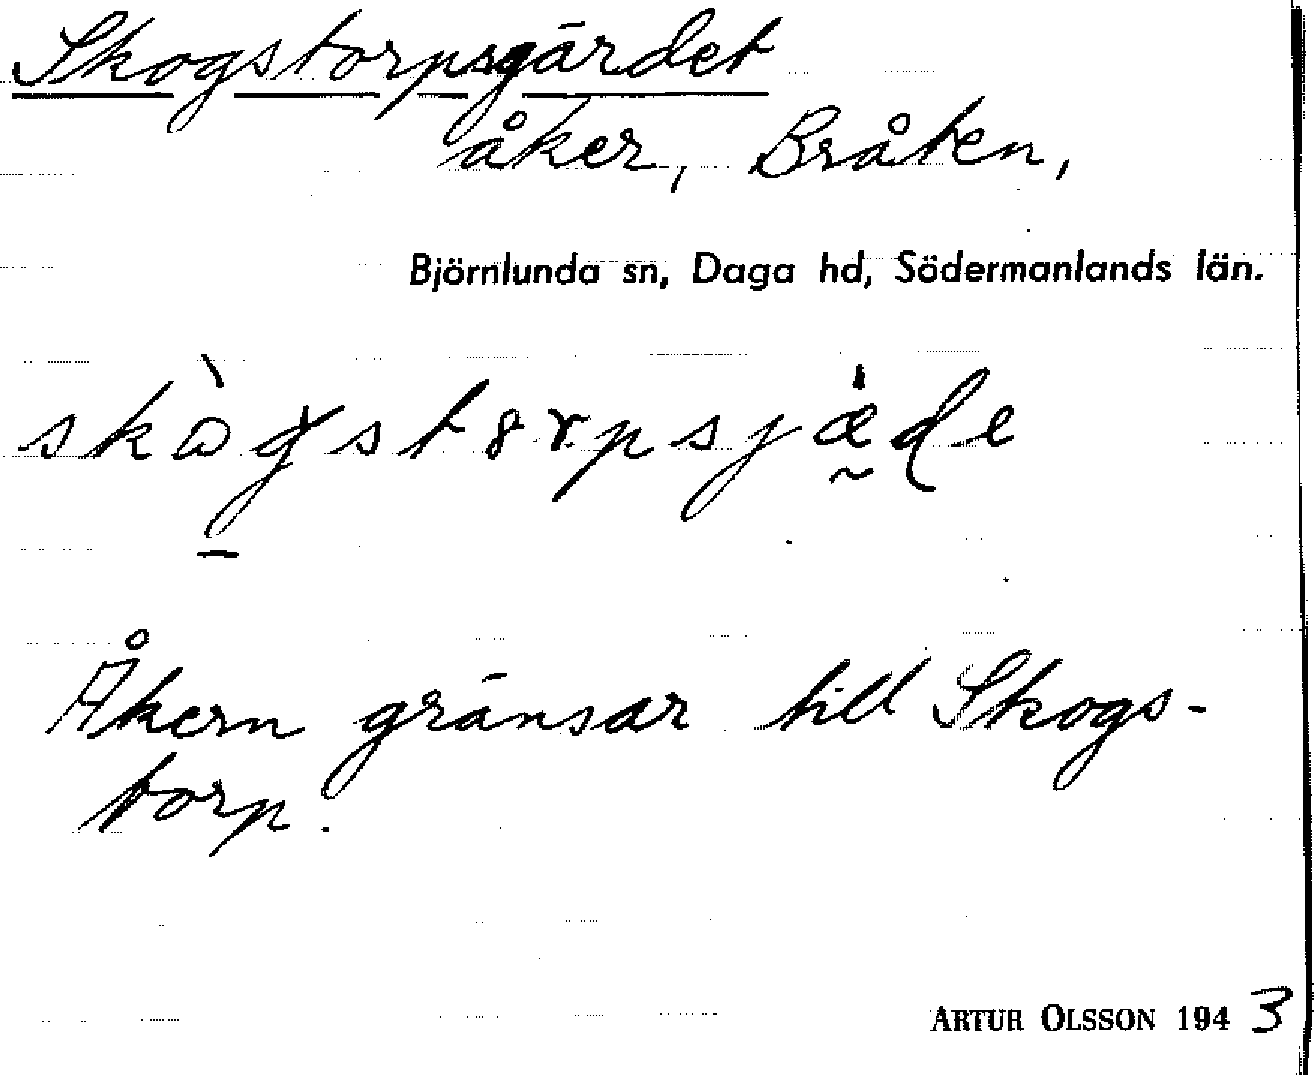 Skogstorpsgärdet
åker, Bråten,
Björnlunda sn, Daga hd, Södermanlands län.
Åkern gränsar till Skogs-
torp.
ARTUR OLSSON 1943